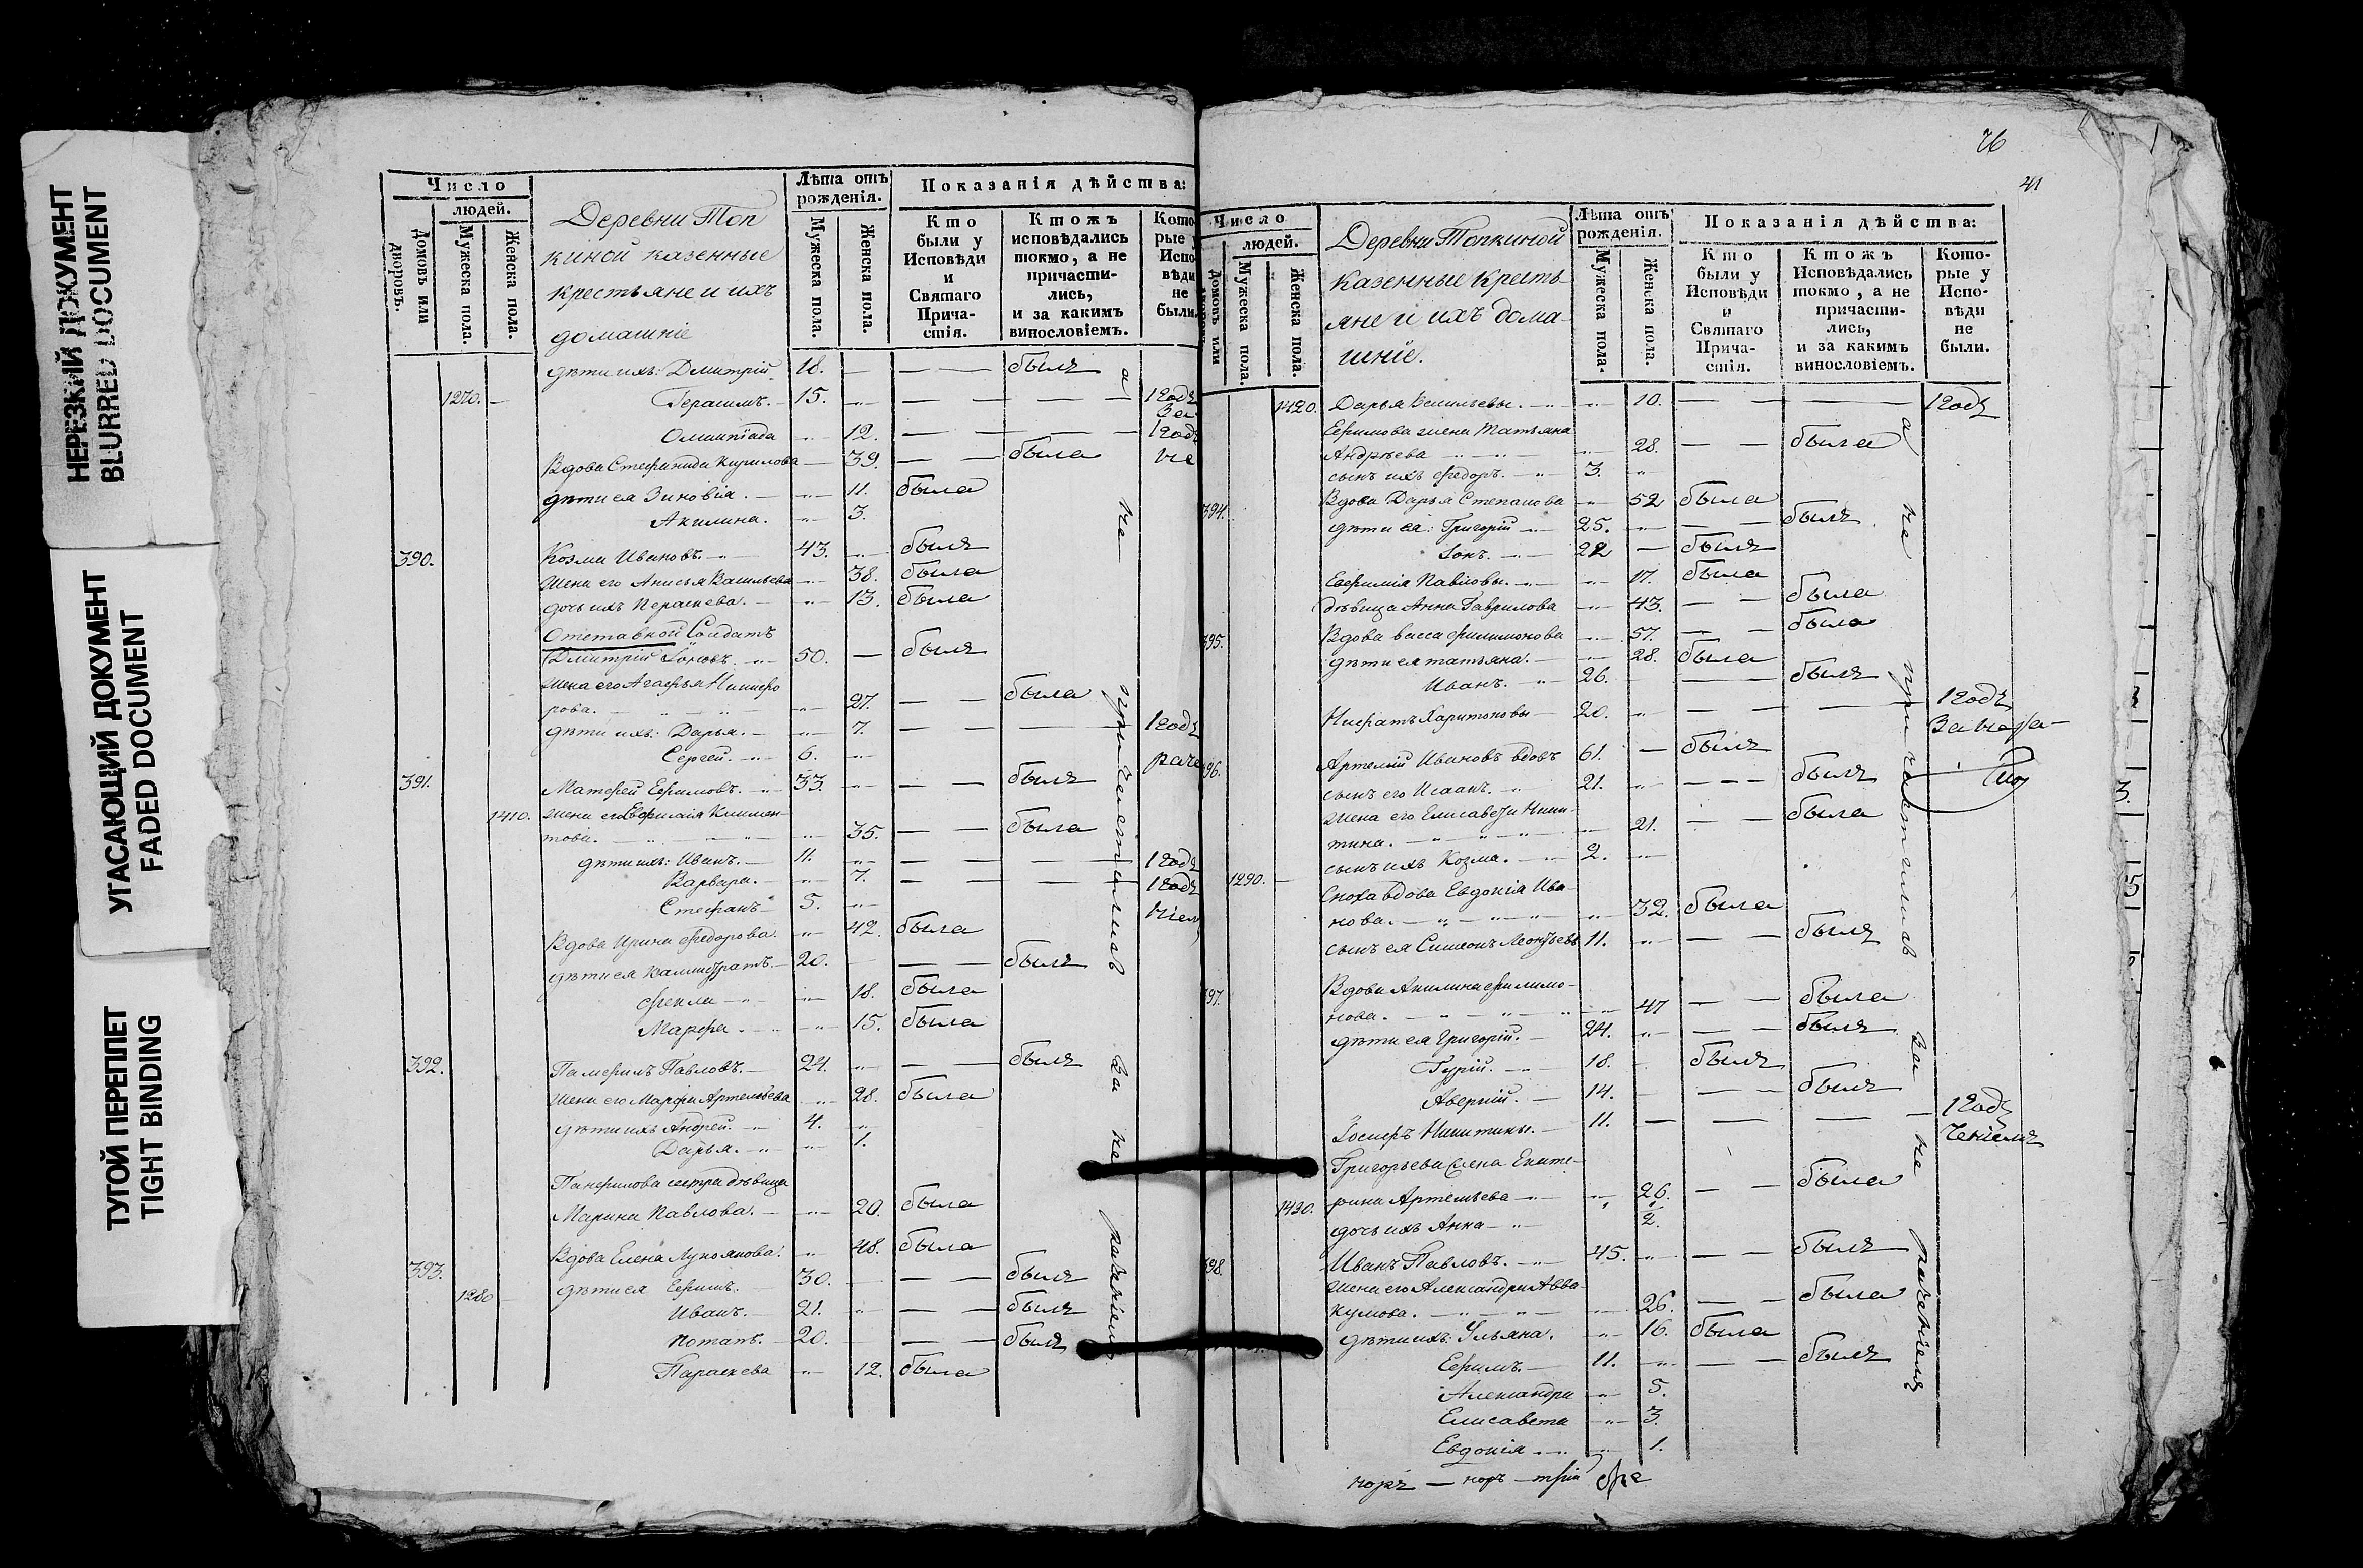 НЕРЕЗКИЙ ДОКУМЕНТ
BLURRED DOCUMENT
УГАСАЮЩИЙ ДОКУМЕНТ
FADED DOCUMENT
ТУГОЙ ПЕРЕПЛЕТ
TIGHT BINDING
Число
людей.
домовъ или дворовъ.
Мужеска пола.
Женска пола.
Деревни Топ
киной казенные
крестьяне и ихъ
домашніе
Лѣта отъ рожденія.
Мужеска пола.
Женска пола.
Показанія дѣйства:
Кто были у Исповѣди и Святаго Причастія.
Ктожъ исповѣдались токмо, а не причастились, и за какимъ винословіемъ.
Кото-
рые у
Испо
вѣди
не
были.
дѣти ихъ: Дмитрій 18. — — — былъ
1270. — Герасимъ. — 15. — — — — 1 годъ
Олимпіада — 12. — — — — 1 годъ
Вдова Стефанида Кирилова — 39. — — была не
дѣти ея Зиновія. — 11. была
Акилина. — 3.
390. Козма Ивановъ. — 43. — былъ
Жена его Анисья Васильева — 38. была
дочь ихъ Параскева. — 13. была
Отставной Солдатъ
Дмитрій Іоновъ. — 50. — былъ
Жена его Агафья Никифо
рова. — 27. — — была
дѣти ихъ: Дарья. — 7. — — — 1 годъ
Сергей. — 6. — раче
391. Матфей Ефимовъ. — 33. — — — былъ
1410. Жена его Евфимія Климен-
това. — 35. — — была
дѣти ихъ: Иванъ. — 11. — — — — 1 годъ
Варвара. — 7. — — — 1 годъ
Стефанъ — 5. — ніем
Вдова Ирина Федорова. — 42. была
дѣти ея Каллистратъ. — 20. — — — былъ
Фекла — 18. была
Марфа. — 15. была
392. Памфилъ Павловъ. — 24. — — — былъ
Жена его Марфа Артемьева — 28. была
дѣти ихъ Андрей. — 4. —
Дарья. — 1.
Панфилова сестра дѣвица
Марина Павлова. — 20. была
Вдова Елена Лукоянова. — 48. была
393. дѣти ея Ефимъ. — 30. — — — былъ
1280 Иванъ. — 21. — — — былъ
Потапъ. — 20. — — — былъ
Параскева — 12. была
а не причастился за не раченіемъ
76
41
Число
людей.
домовъ или
Мужеска пола.
Женска пола.
Деревни Топкиной
казенные кресть
яне и ихъ дома-
шніе.
Лѣта отъ рожденія.
Мужеска пола.
Женска пола.
Показанія дѣйства:
Кто были у Исповѣди и Святаго Причастія.
Ктожъ Исповѣдались токмо, а не причастились, и за какимъ винословіемъ.
Которые у Исповѣди не были.
1420. Дарья Васильевы. — 10. — — — 1 годъ
Ефимова жена Татьяна
Андреева — 28. — — была
сынъ ихъ Федоръ. — 3. —
394. Вдова Дарья Степанова — 52 была
дѣти ея: Григорій — 25. — — — былъ
Іонъ. — 22 — былъ
Евфимія Павловы. — 17. была
дѣвица Анна Гаврилова — 43. — — была
395. Вдова Васса Филимонова — 57. — — была
дѣти ея Татьяна. — 28. была
Иванъ. — 26. — — былъ
Нифатъ Харитоновы — 20. — — — — 1 годъ
За нера-
396. Артемій Ивановъ вдовъ 61. — былъ
сынъ его Исаакъ. — 21. — — — былъ
Жена его Елисавета Ники-
тина. — 21. — — была
1290. — сынъ ихъ Козма. — 2. —
Сноха вдова Евдокія Ива-
нова. — 32. была
сынъ ея Симеонъ Леонтьевъ 11. — — — былъ
397. Вдова Акилина Филимо-
нова. — 47 — — была
дѣти ея Григорій. — 24. — — — былъ
Гурій. — 18. — былъ
Аверкій. — 14. — — — былъ
Іосифъ Никитины. — 11. — — — — 1 годъ
ченіемъ
Григорьева жена Екате-
1430. рина Артемьева — 26. — — была
дочь ихъ Анна — 2.
398. Иванъ Павловъ. — 45. — — — былъ
Жена его Александра Авва
кумова. — 26. — — была
дѣти ихъ: Ульяна. — 16. была
Ефимъ — 11. — — — былъ
Александра — 5.
Елисавета — 3.
Евдокія — 1.
а не причастился за не раченіемъ